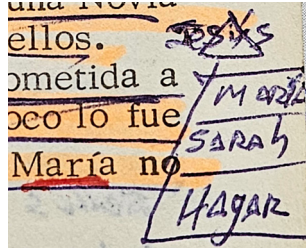 una Novia
ellos.
ometida a
oco lo fue
María no
Jesús
María
SARAh
HAgAR